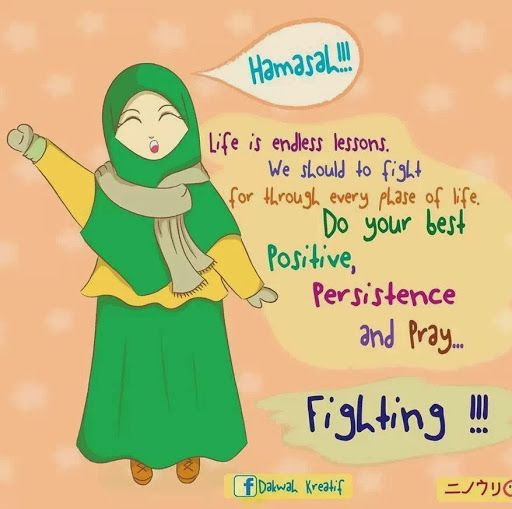 Hamasah!!!
Life is endless lessons.
We should to fight
for through every phase of life.
Do your best
Positive,
Persistence
and Pray...
Fighting !!!
f Dakwah Kreatif
ニノウリ